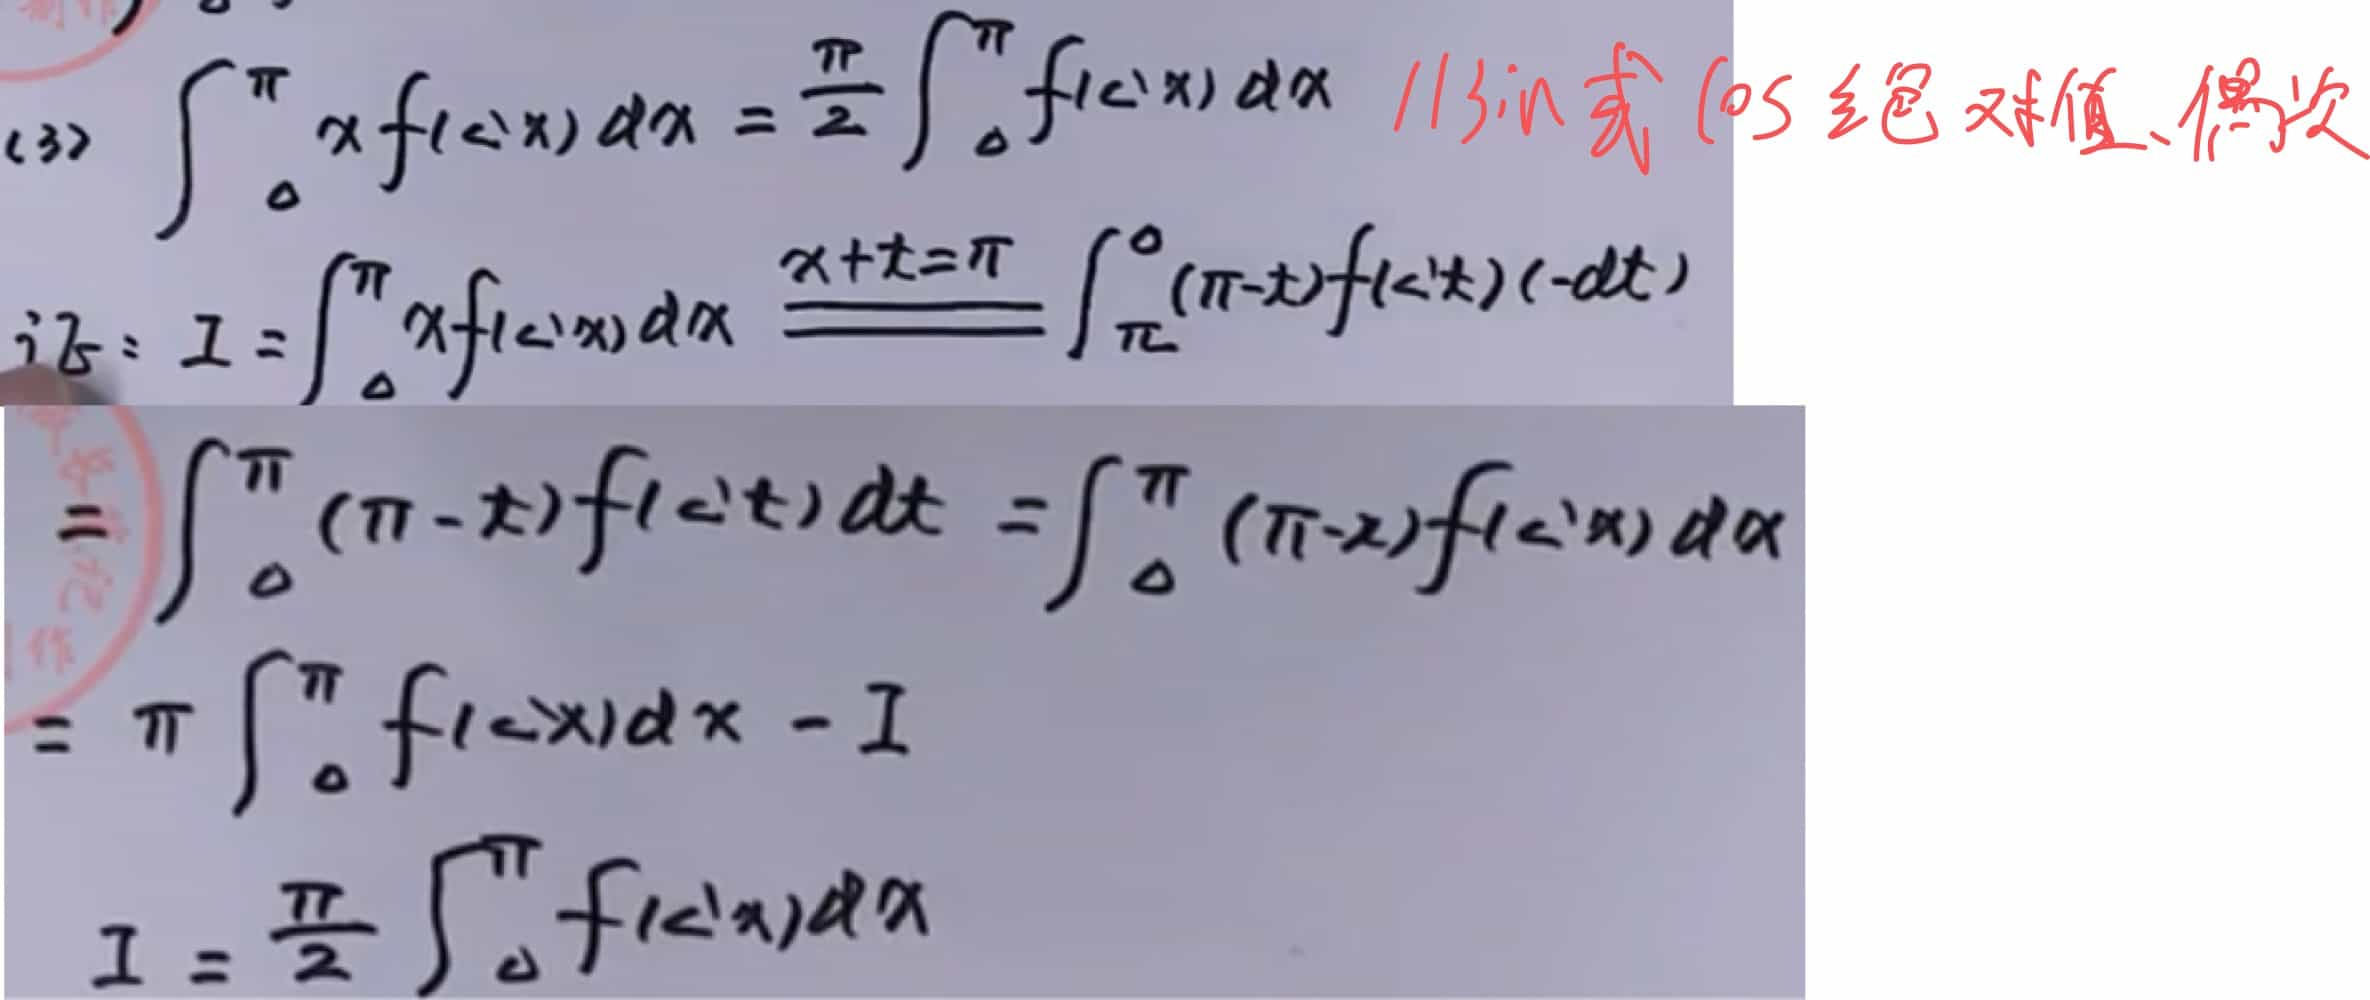 (3) ∫₀^π x f(sin x) dx = π/2 ∫₀^π f(sin x) dx //sin或cos绝对值、偶次
证: I = ∫₀^π x f(sin x) dx ══(x+t=π)══ ∫_π^0 (π-t) f(sin t) (-dt)
= ∫₀^π (π-t) f(sin t) dt = ∫₀^π (π-x) f(sin x) dx
= π ∫₀^π f(sin x) dx - I
I = π/2 ∫₀^π f(sin x) dx